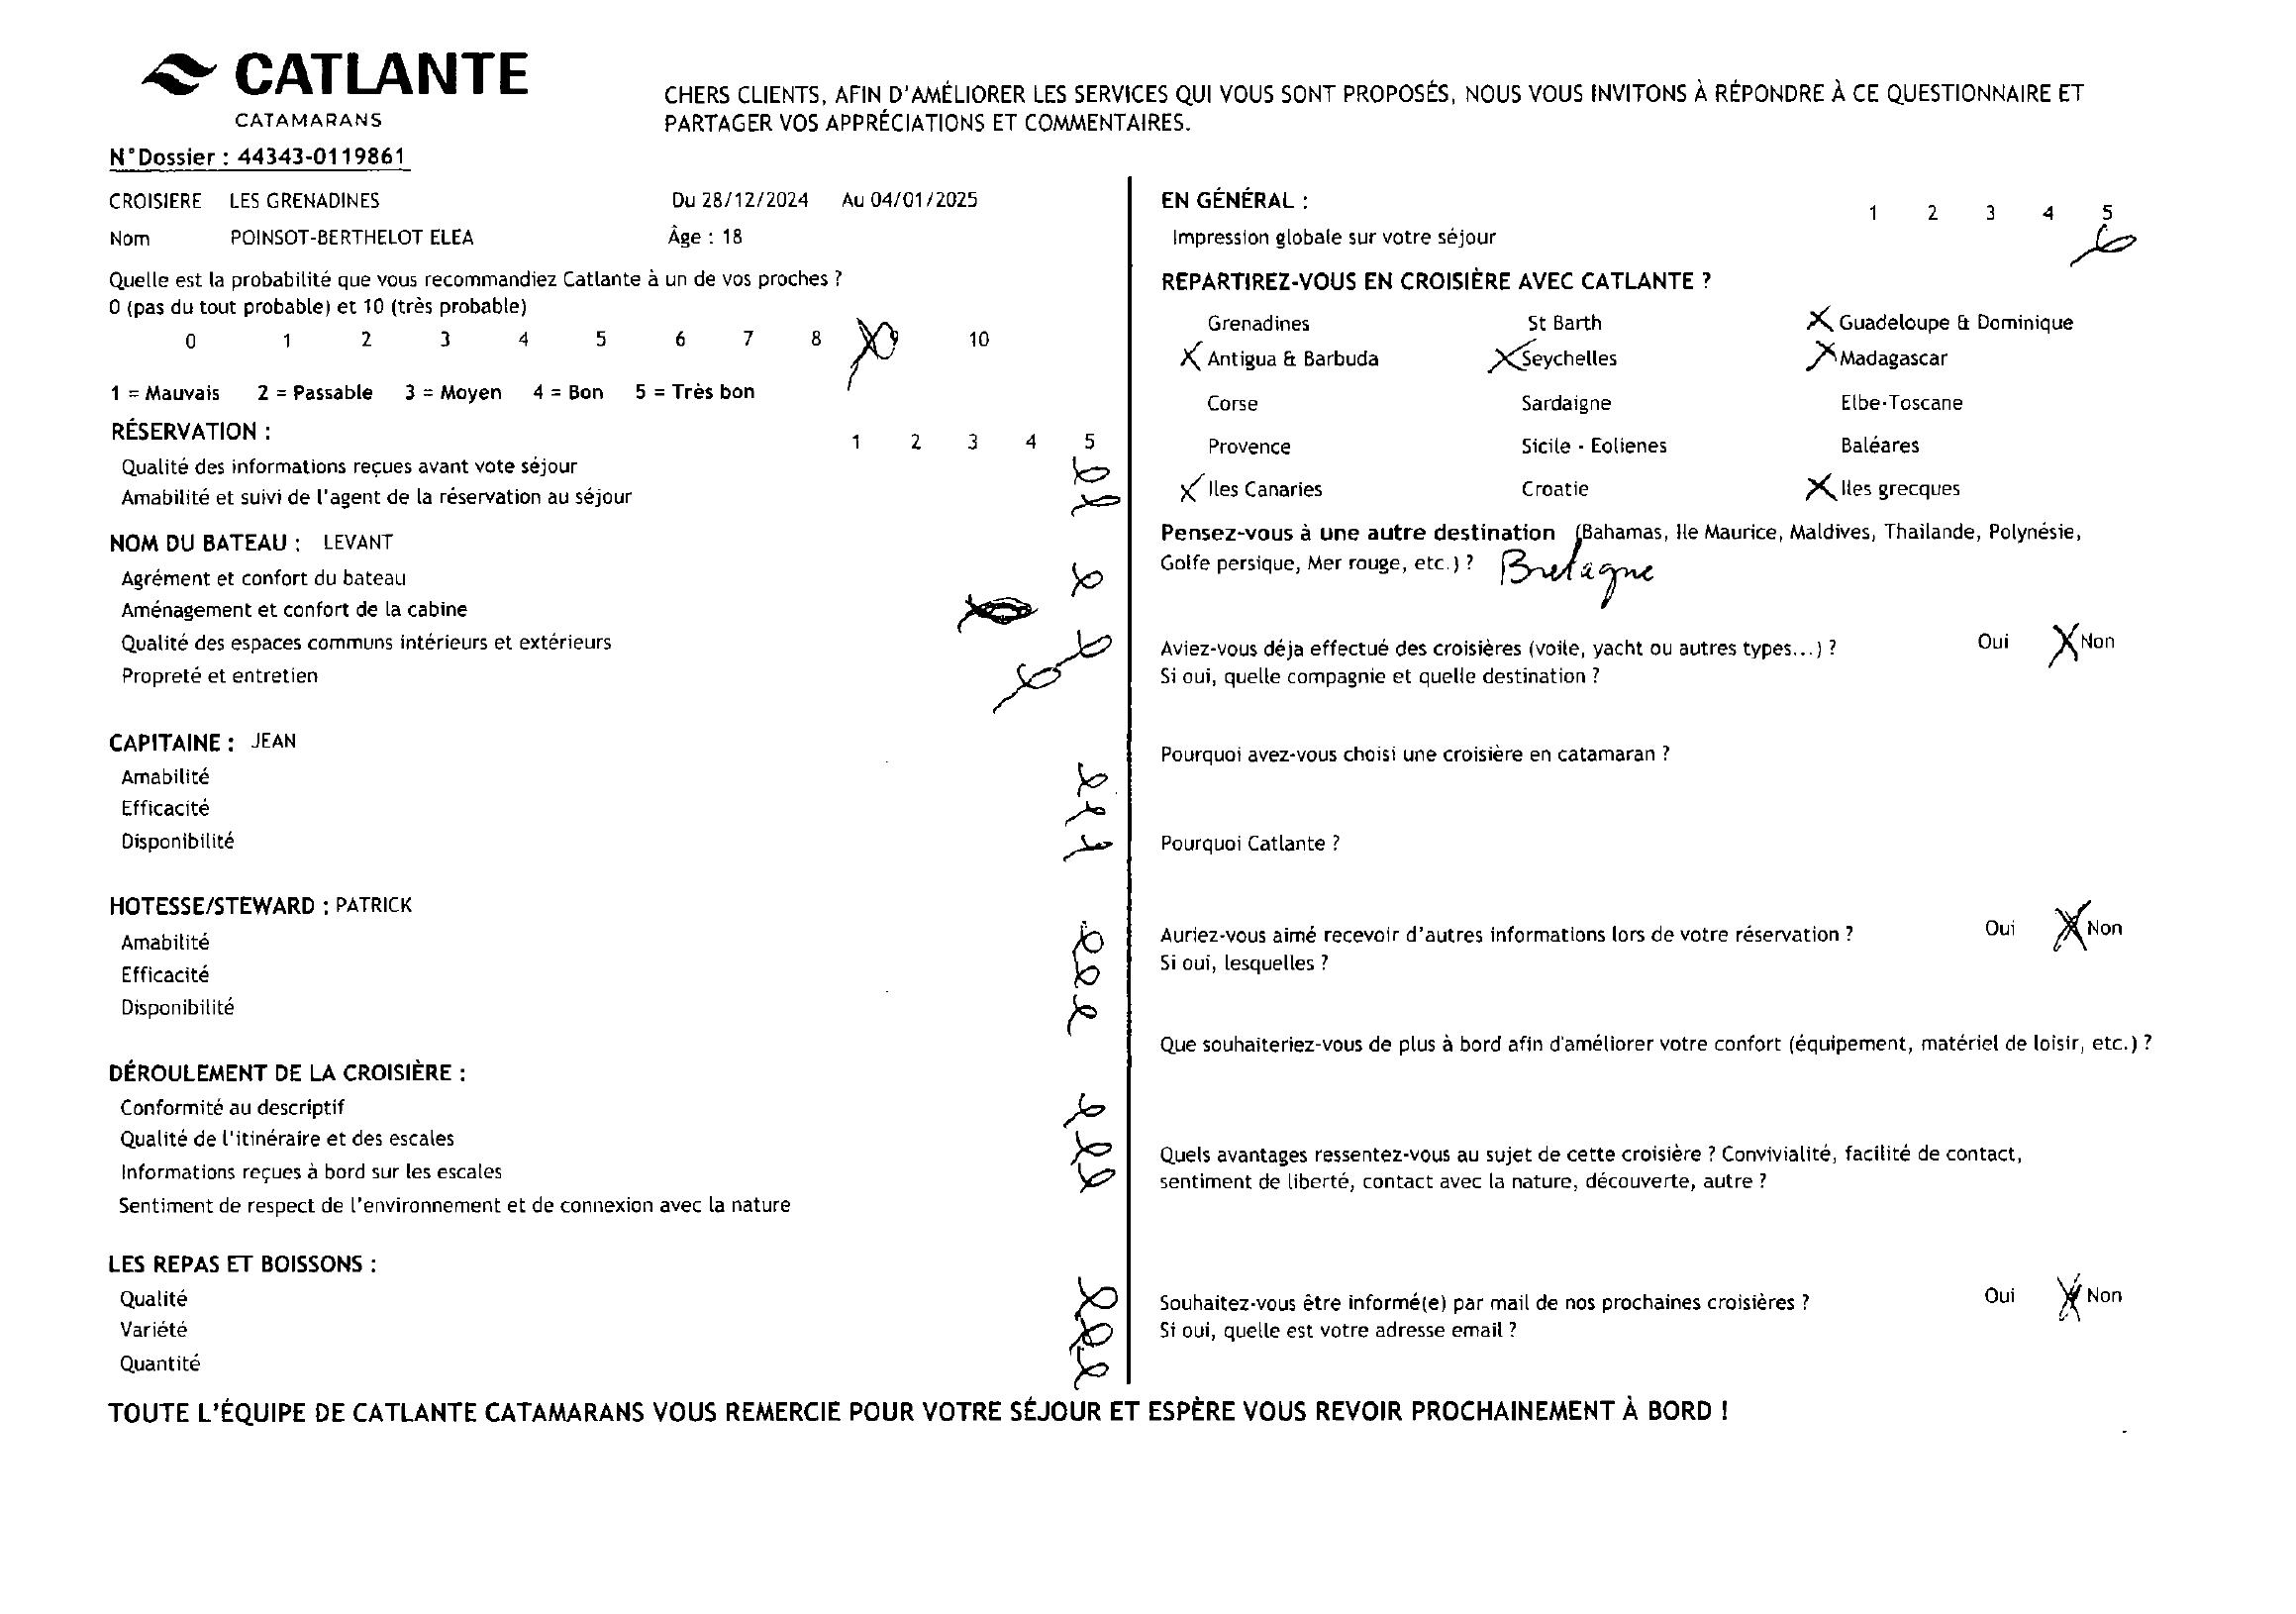 CATLANTE
CATAMARANS
CHERS CLIENTS, AFIN D'AMÉLIORER LES SERVICES QUI VOUS SONT PROPOSÉS, NOUS VOUS INVITONS À RÉPONDRE À CE QUESTIONNAIRE ET
PARTAGER VOS APPRÉCIATIONS ET COMMENTAIRES.
N°Dossier : 44343-0119861
CROISIERE LES GRENADINES Du 28/12/2024 Au 04/01/2025
Nom POINSOT-BERTHELOT ELEA Âge : 18
Quelle est la probabilité que vous recommandiez Catlante à un de vos proches ?
0 (pas du tout probable) et 10 (très probable)
0 1 2 3 4 5 6 7 8 9 10
1 = Mauvais 2 = Passable 3 = Moyen 4 = Bon 5 = Très bon
RÉSERVATION :
1 2 3 4 5
Qualité des informations reçues avant vote séjour
Amabilité et suivi de l'agent de la réservation au séjour
NOM DU BATEAU : LEVANT
Agrément et confort du bateau
Aménagement et confort de la cabine
Qualité des espaces communs intérieurs et extérieurs
Propreté et entretien
CAPITAINE : JEAN
Amabilité
Efficacité
Disponibilité
HOTESSE/STEWARD : PATRICK
Amabilité
Efficacité
Disponibilité
DÉROULEMENT DE LA CROISIÈRE :
Conformité au descriptif
Qualité de l'itinéraire et des escales
Informations reçues à bord sur les escales
Sentiment de respect de l'environnement et de connexion avec la nature
LES REPAS ET BOISSONS :
Qualité
Variété
Quantité
EN GÉNÉRAL :
1 2 3 4 5
Impression globale sur votre séjour
REPARTIREZ-VOUS EN CROISIÈRE AVEC CATLANTE ?
Grenadines St Barth X Guadeloupe & Dominique
X Antigua & Barbuda X Seychelles X Madagascar
Corse Sardaigne Elbe-Toscane
Provence Sicile - Eolienes Baléares
X Iles Canaries Croatie X Iles grecques
Pensez-vous à une autre destination (Bahamas, Ile Maurice, Maldives, Thaïlande, Polynésie,
Golfe persique, Mer rouge, etc.) ? Bretagne
Aviez-vous déja effectué des croisières (voile, yacht ou autres types...) ? Oui X Non
Si oui, quelle compagnie et quelle destination ?
Pourquoi avez-vous choisi une croisière en catamaran ?
Pourquoi Catlante ?
Auriez-vous aimé recevoir d'autres informations lors de votre réservation ? Oui X Non
Si oui, lesquelles ?
Que souhaiteriez-vous de plus à bord afin d'améliorer votre confort (équipement, matériel de loisir, etc.) ?
Quels avantages ressentez-vous au sujet de cette croisière ? Convivialité, facilité de contact,
sentiment de liberté, contact avec la nature, découverte, autre ?
Souhaitez-vous être informé(e) par mail de nos prochaines croisières ? Oui X Non
Si oui, quelle est votre adresse email ?
TOUTE L'ÉQUIPE DE CATLANTE CATAMARANS VOUS REMERCIE POUR VOTRE SÉJOUR ET ESPÈRE VOUS REVOIR PROCHAINEMENT À BORD !